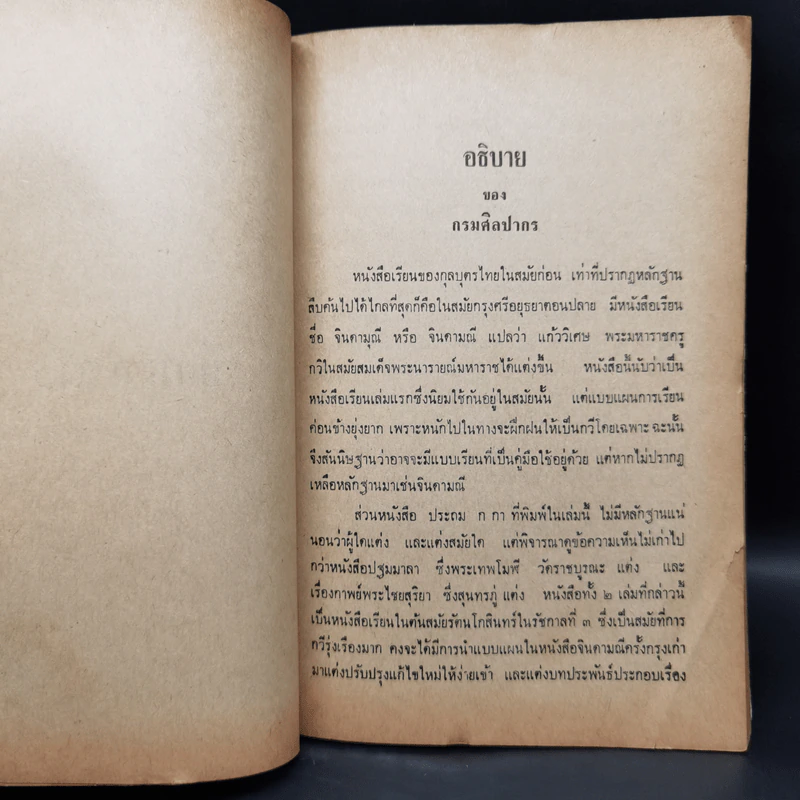 อธิบาย
ของ
กรมศิลปากร
หนังสือเรียนของกุลบุตรไทยในสมัยก่อน เท่าที่ปรากฏหลักฐาน
สืบค้นไปได้ไกลที่สุดก็คือในสมัยกรุงศรีอยุธยาตอนปลาย มีหนังสือเรียน
ชื่อ จินดามุณี หรือ จินดามณี แปลว่า แก้ววิเศษ พระมหาราชครู
กวีในสมัยสมเด็จพระนารายณ์มหาราชได้แต่งขึ้น หนังสือนี้นับว่าเป็น
หนังสือเรียนเล่มแรกซึ่งนิยมใช้กันอยู่ในสมัยนั้น แต่แบบแผนการเรียน
ค่อนข้างยุ่งยาก เพราะหนักไปในทางจะฝึกฝนให้เป็นกวีโดยเฉพาะ ฉะนั้น
จึงสันนิษฐานว่าอาจจะมีแบบเรียนที่เป็นคู่มือใช้อยู่ด้วย แต่หากไม่ปรากฏ
เหลือหลักฐานมาเช่นจินดามณี
ส่วนหนังสือ ประถม ก กา ที่พิมพ์ในเล่มนี้ ไม่มีหลักฐานแน่
นอนว่าผู้ใดแต่ง และแต่งสมัยใด แต่พิจารณาดูข้อความเห็นไม่เก่าไป
กว่าหนังสือปฐมมาลา ซึ่งพระเทพโมฬี วัดราชบูรณะ แต่ง และ
เรื่องกาพย์พระไชยสุริยา ซึ่งสุนทรภู่ แต่ง หนังสือทั้ง ๒ เล่มที่กล่าวนี้
เป็นหนังสือเรียนในต้นสมัยรัตนโกสินทร์ในรัชกาลที่ ๓ ซึ่งเป็นสมัยที่การ
กวีรุ่งเรืองมาก คงจะได้มีการนำแบบแผนในหนังสือจินดามณีครั้งกรุงเก่า
มาแต่งปรับปรุงแก้ไขใหม่ให้ง่ายเข้า และแต่งบทประพันธ์ประกอบเรื่อง